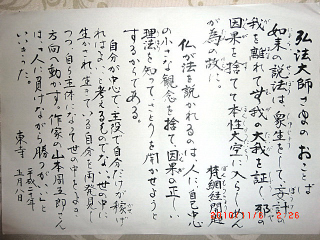 弘法大師さまのおことば
如来の説法は、衆生をして、妄計の
我を離れて、真我の大我を証し、邪の
因果を捨てて本性大空に入らしめん
が為の故に。
梵網経開題
仏が法を説かれるのは、人に自己中心
の小さな観念を捨て、因果の正しい
理法を知って、さとりを開かせようと
するからである。
自分が中心で、主役で、自分だけが稼げ
ればよい、と考えるものでない。世の中に
生かされ、生きている自分を再発見し
つつ、自ら主体になって世の中をよりよい
方向へ動かす。作家の山本周五郎さん
は「人に負けながら勝つがいい」と
いった。
東寺
平成二十二年
五月八日
2010/11/3